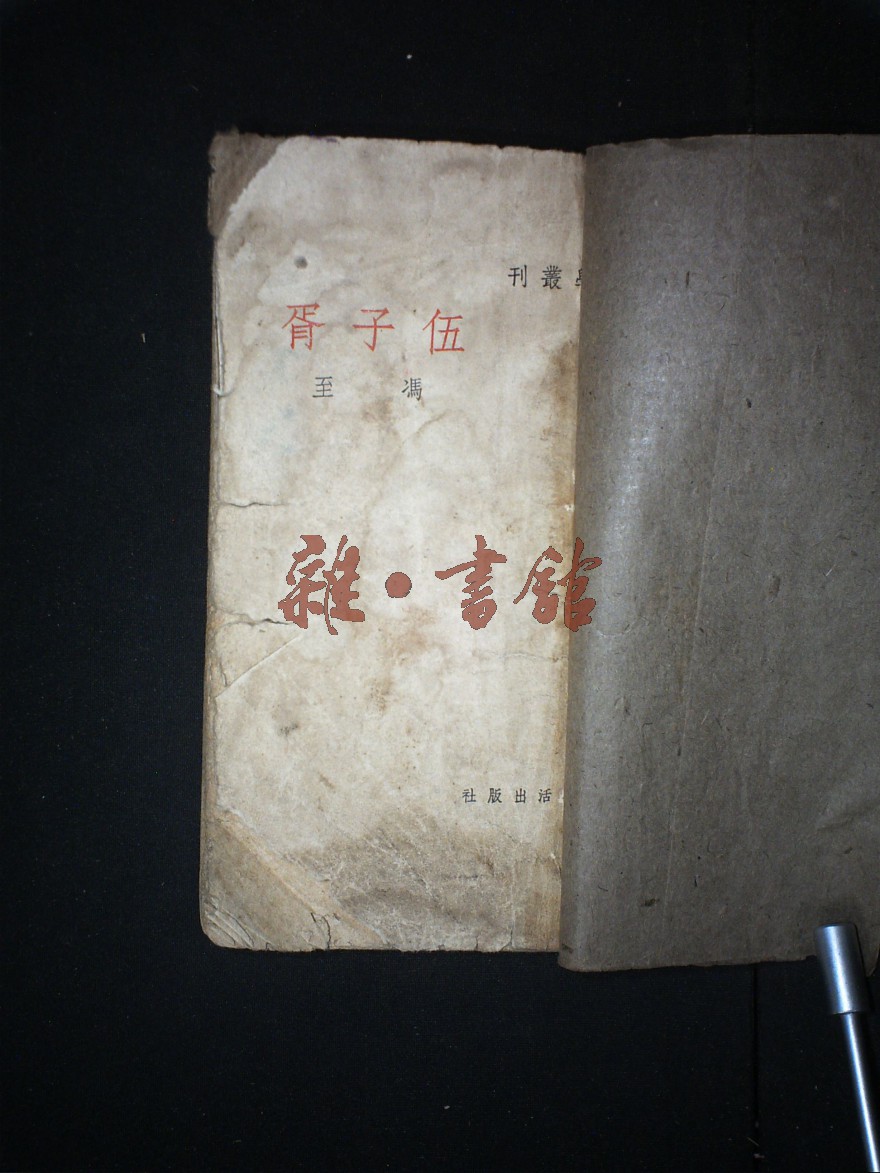 叢刊
伍子胥
馮至
雜·書館
活出版社